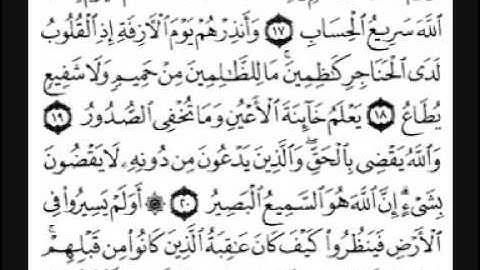 اللَّهَ سَرِيعُ الْحِسَابِ ١٧ وَأَنذِرْهُمْ يَوْمَ الْآزِفَةِ إِذِ الْقُلُوبُ
لَدَى الْحَنَاجِرِ كَاظِمِينَ ۚ مَا لِلظَّالِمِينَ مِنْ حَمِيمٍ وَلَا شَفِيعٍ
يُطَاعُ ١٨ يَعْلَمُ خَائِنَةَ الْأَعْيُنِ وَمَا تُخْفِي الصُّدُورُ ١٩
وَاللَّهُ يَقْضِي بِالْحَقِّ ۖ وَالَّذِينَ يَدْعُونَ مِن دُونِهِ لَا يَقْضُونَ
بِشَيْءٍ ۗ إِنَّ اللَّهَ هُوَ السَّمِيعُ الْبَصِيرُ ٢٠ ۞ أَوَلَمْ يَسِيرُوا فِي
الْأَرْضِ فَيَنظُرُوا كَيْفَ كَانَ عَاقِبَةُ الَّذِينَ كَانُوا مِن قَبْلِهِمْ ۚ